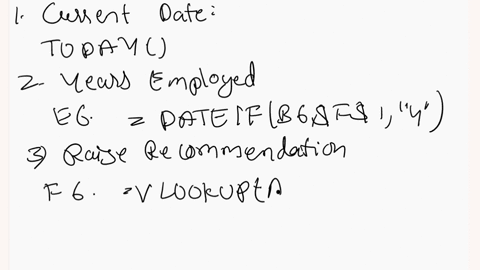 1. Current Date:
TODAY()
2 Years Employed
E6. = DATEIF(B6,$F$1,"Y")
3) Raise Recommendation
F6. =VLOOKUP(A